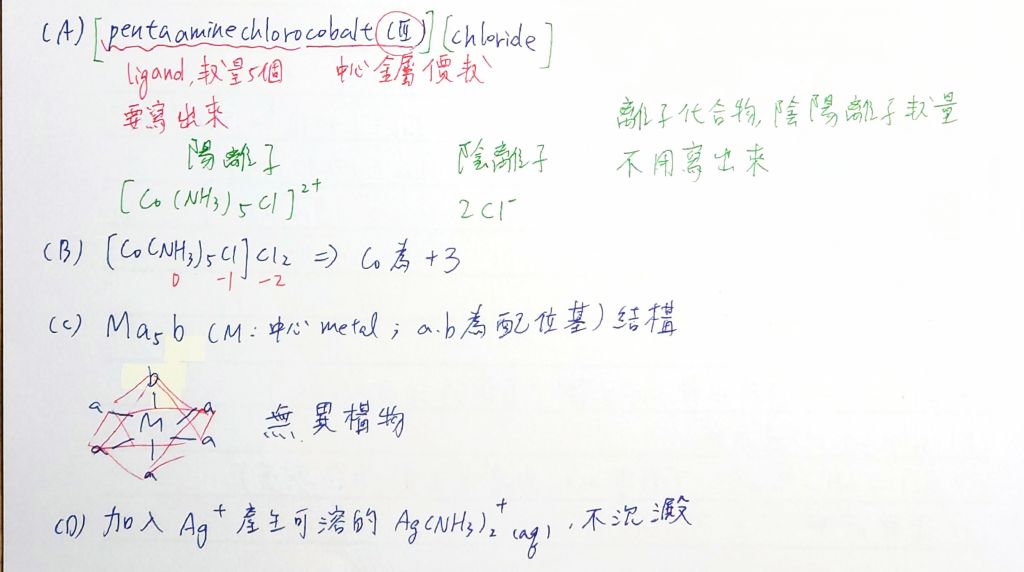 (A) [pentaaminechlorocobalt (III)] [chloride]
ligand,數量5個 中心金屬價數
要寫出來
離子化合物,陰陽離子數量
陽離子 陰離子 不用寫出來
[Co(NH3)5Cl]2+ 2Cl-
(B) [Co(NH3)5Cl]Cl2 => Co為+3
0 -1 -2
(C) Ma5b (M:中心metal; a.b為配位基)結構
b
a M a
a a
a
無異構物
(D) 加入 Ag+ 產生可溶的 Ag(NH3)2+(aq),不沉澱